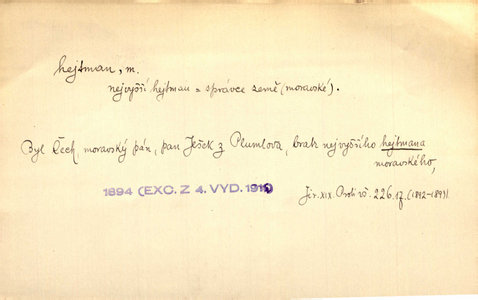 hejtman, m.
nejvyšší hejtman = správce země (moravské).
Byl Čech, moravský pán, pan Ješek z Plumlova, brat nejvyššího hejtmana
moravského,
1894 (EXC. Z 4. VYD. 1911)
Jir. XIX. Proti vš. 226. 17. (1892-1893)